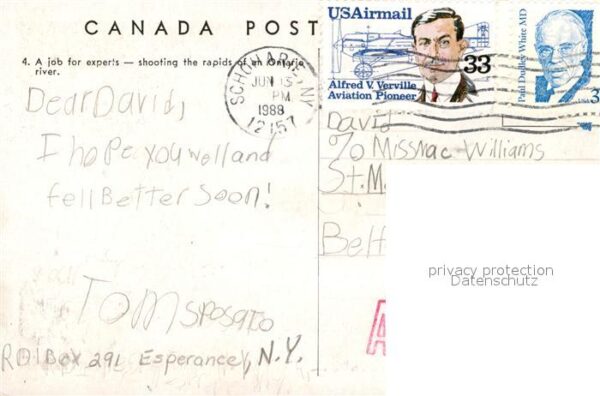 CANADA POST
4. A job for experts — shooting the rapids of an Ontario
river.
USAirmail
33
Alfred V. Verville
Aviation Pioneer
Paul Dudley White MD
USA 3
SCHOHARIE, NY
JUN 13
PM
1988
12157
Dear David,
I hope you well and
fell Better soon!
Tom Sposato
RD1Box 291 Esperance, N.Y.
David
℅ Miss Mac Williams
St. M
Belf
A
privacy protection
Datenschutz